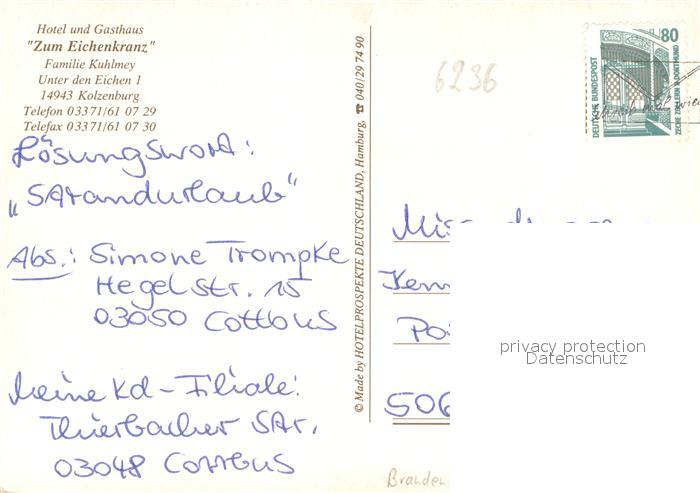 Hotel und Gasthaus
"Zum Eichenkranz"
Familie Kuhlmey
Unter den Eichen 1
14943 Kolzenburg
Telefon 03371/61 07 29
Telefax 03371/61 07 30
Lösungswort:
„Strandurlaub"
Abs.: Simone Trompke
Hegelstr. 15
03050 Cottbus
Meine kd-Filiale:
Thierbacher Str.
03048 Cottbus
© Made by HOTELPROSPEKTE DEUTSCHLAND, Hamburg, ☎ 040/29 74 90
6236
80
DEUTSCHE BUNDESPOST
ZECHE ZOLLERN II · DORTMUND
506
privacy protection
Datenschutz
Branden